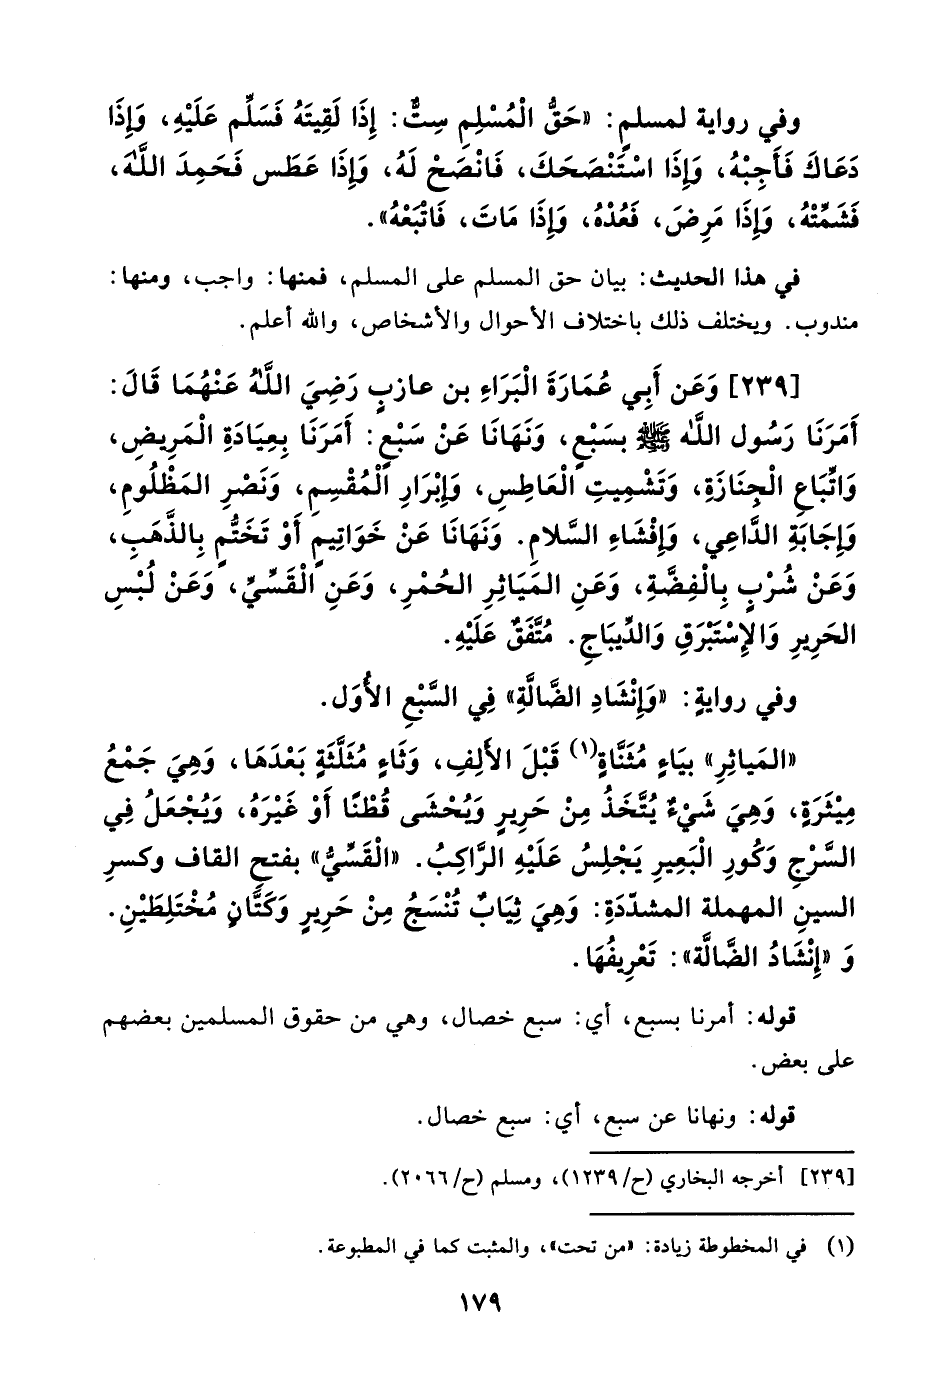 وفي رواية لمسلمٍ: «حَقُّ الْمُسْلِمِ سِتٌّ: إِذَا لَقِيتَهُ فَسَلِّم عَلَيْهِ، وَإِذَا
دَعَاكَ فَأَجِبْهُ، وَإِذَا اسْتَنْصَحَكَ، فَانْصَحْ لَهُ، وَإِذَا عَطَس فَحَمِدَ اللَّهَ،
فَشَمِّتْهُ، وَإِذَا مَرِضَ، فَعُدْهُ، وَإِذَا مَاتَ، فَاتْبَعْهُ».
في هذا الحديث: بيان حق المسلم على المسلم، فمنها: واجب، ومنها:
مندوب. ويختلف ذلك باختلاف الأحوال والأشخاص، والله أعلم.
[٢٣٩] وَعَن أَبِي عُمَارَةَ الْبَرَاءِ بن عازبٍ رَضِيَ اللَّهُ عَنْهُمَا قَالَ:
أَمَرَنَا رَسُول اللَّه ﷺ بسَبْعٍ، وَنَهَانَا عَنْ سَبْعٍ: أَمَرَنَا بِعِيَادَةِ الْمَرِيضِ،
وَاتِّبَاعِ الْجِنَازَةِ، وَتَشْمِيتِ الْعَاطِسِ، وَإِبْرَارِ الْمُقْسِمِ، وَنَصْرِ المَظْلُومِ،
وَإِجَابَةِ الدَّاعِي، وَإِفْشَاءِ السَّلامِ. وَنَهَانَا عَنْ خَوَاتِيمٍ أَوْ تَخَتُّمٍ بِالذَّهَبِ،
وَعَنْ شُرْبٍ بِالْفِضَّةِ، وَعَنِ المَيَاثِرِ الحُمْرِ، وَعَنِ الْقَسِّيِّ، وَعَنْ لُبْسِ
الحَرِيرِ وَالإِسْتَبْرَقِ وَالدِّيبَاجِ. مُتَّفَقٌ عَلَيْهِ.
وفي روايةٍ: «وَإِنْشَادِ الضَّالَّةِ» فِي السَّبْعِ الأُوَل.
«المَياثِرِ» بيَاءٍ مُثَنَّاةٍ(١) قَبْلَ الأَلِفِ، وَثَاءٍ مُثَلَّثَةٍ بَعْدَهَا، وَهِيَ جَمْعُ
مِيْثَرَةٍ، وَهِيَ شَيْءٌ يُتَّخَذُ مِنْ حَرِيرٍ وَيُحْشَى قُطْنًا أَوْ غَيْرَهُ، وَيُجْعَلُ فِي
السَّرْجِ وَكُورِ الْبَعِيرِ يَجْلِسُ عَلَيْهِ الرَّاكِبُ. «الْقَسِّيُّ» بفتحِ القاف وكسرِ
السينِ المهملة المشدّدَةِ: وَهِيَ ثِيَابٌ تُنْسَجُ مِنْ حَرِيرٍ وَكَتَّانٍ مُخْتَلِطَيْنِ.
وَ «إِنْشَادُ الضَّالَّة»: تَعْرِيفُهَا.
قوله: أمرنا بسبع، أي: سبع خصال، وهي من حقوق المسلمين بعضهم
على بعض.
قوله: ونهانا عن سبع، أي: سبع خصال.
[٢٣٩] أخرجه البخاري (ح/١٢٣٩)، ومسلم (ح/٢٠٦٦).
(١) في المخطوطة زيادة: «من تحت»، والمثبت كما في المطبوعة.
١٧٩